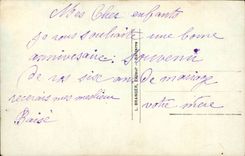 Mes Cher enfants
je vous souhaite une bonne
anniversaire souvenir
de vos six an de mariage
recevais mes meilleur
Baise votre mère
L. BRANGER,